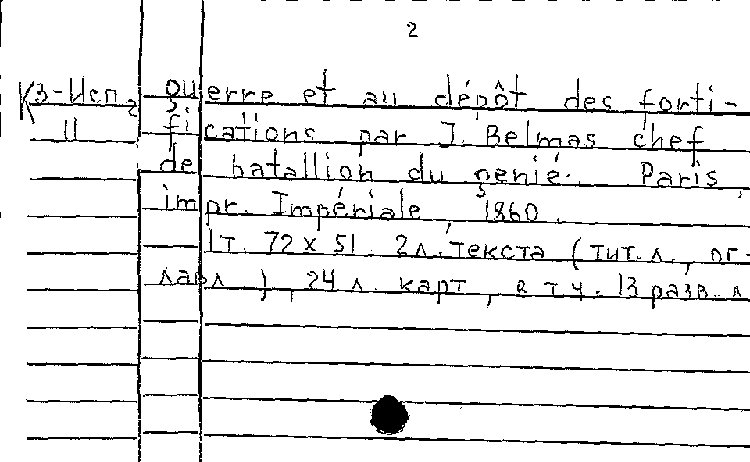 2
К3-Исп2 guerre et au dépôt des forti-
II fications par J. Belmas chef
de batallion du genie. Paris,
impr. Impériale, 1860.
1т. 72 x 51. 2л. текста (тит. л., ог-
лавл), 24 л. карт, в т ч. 13 разв. л